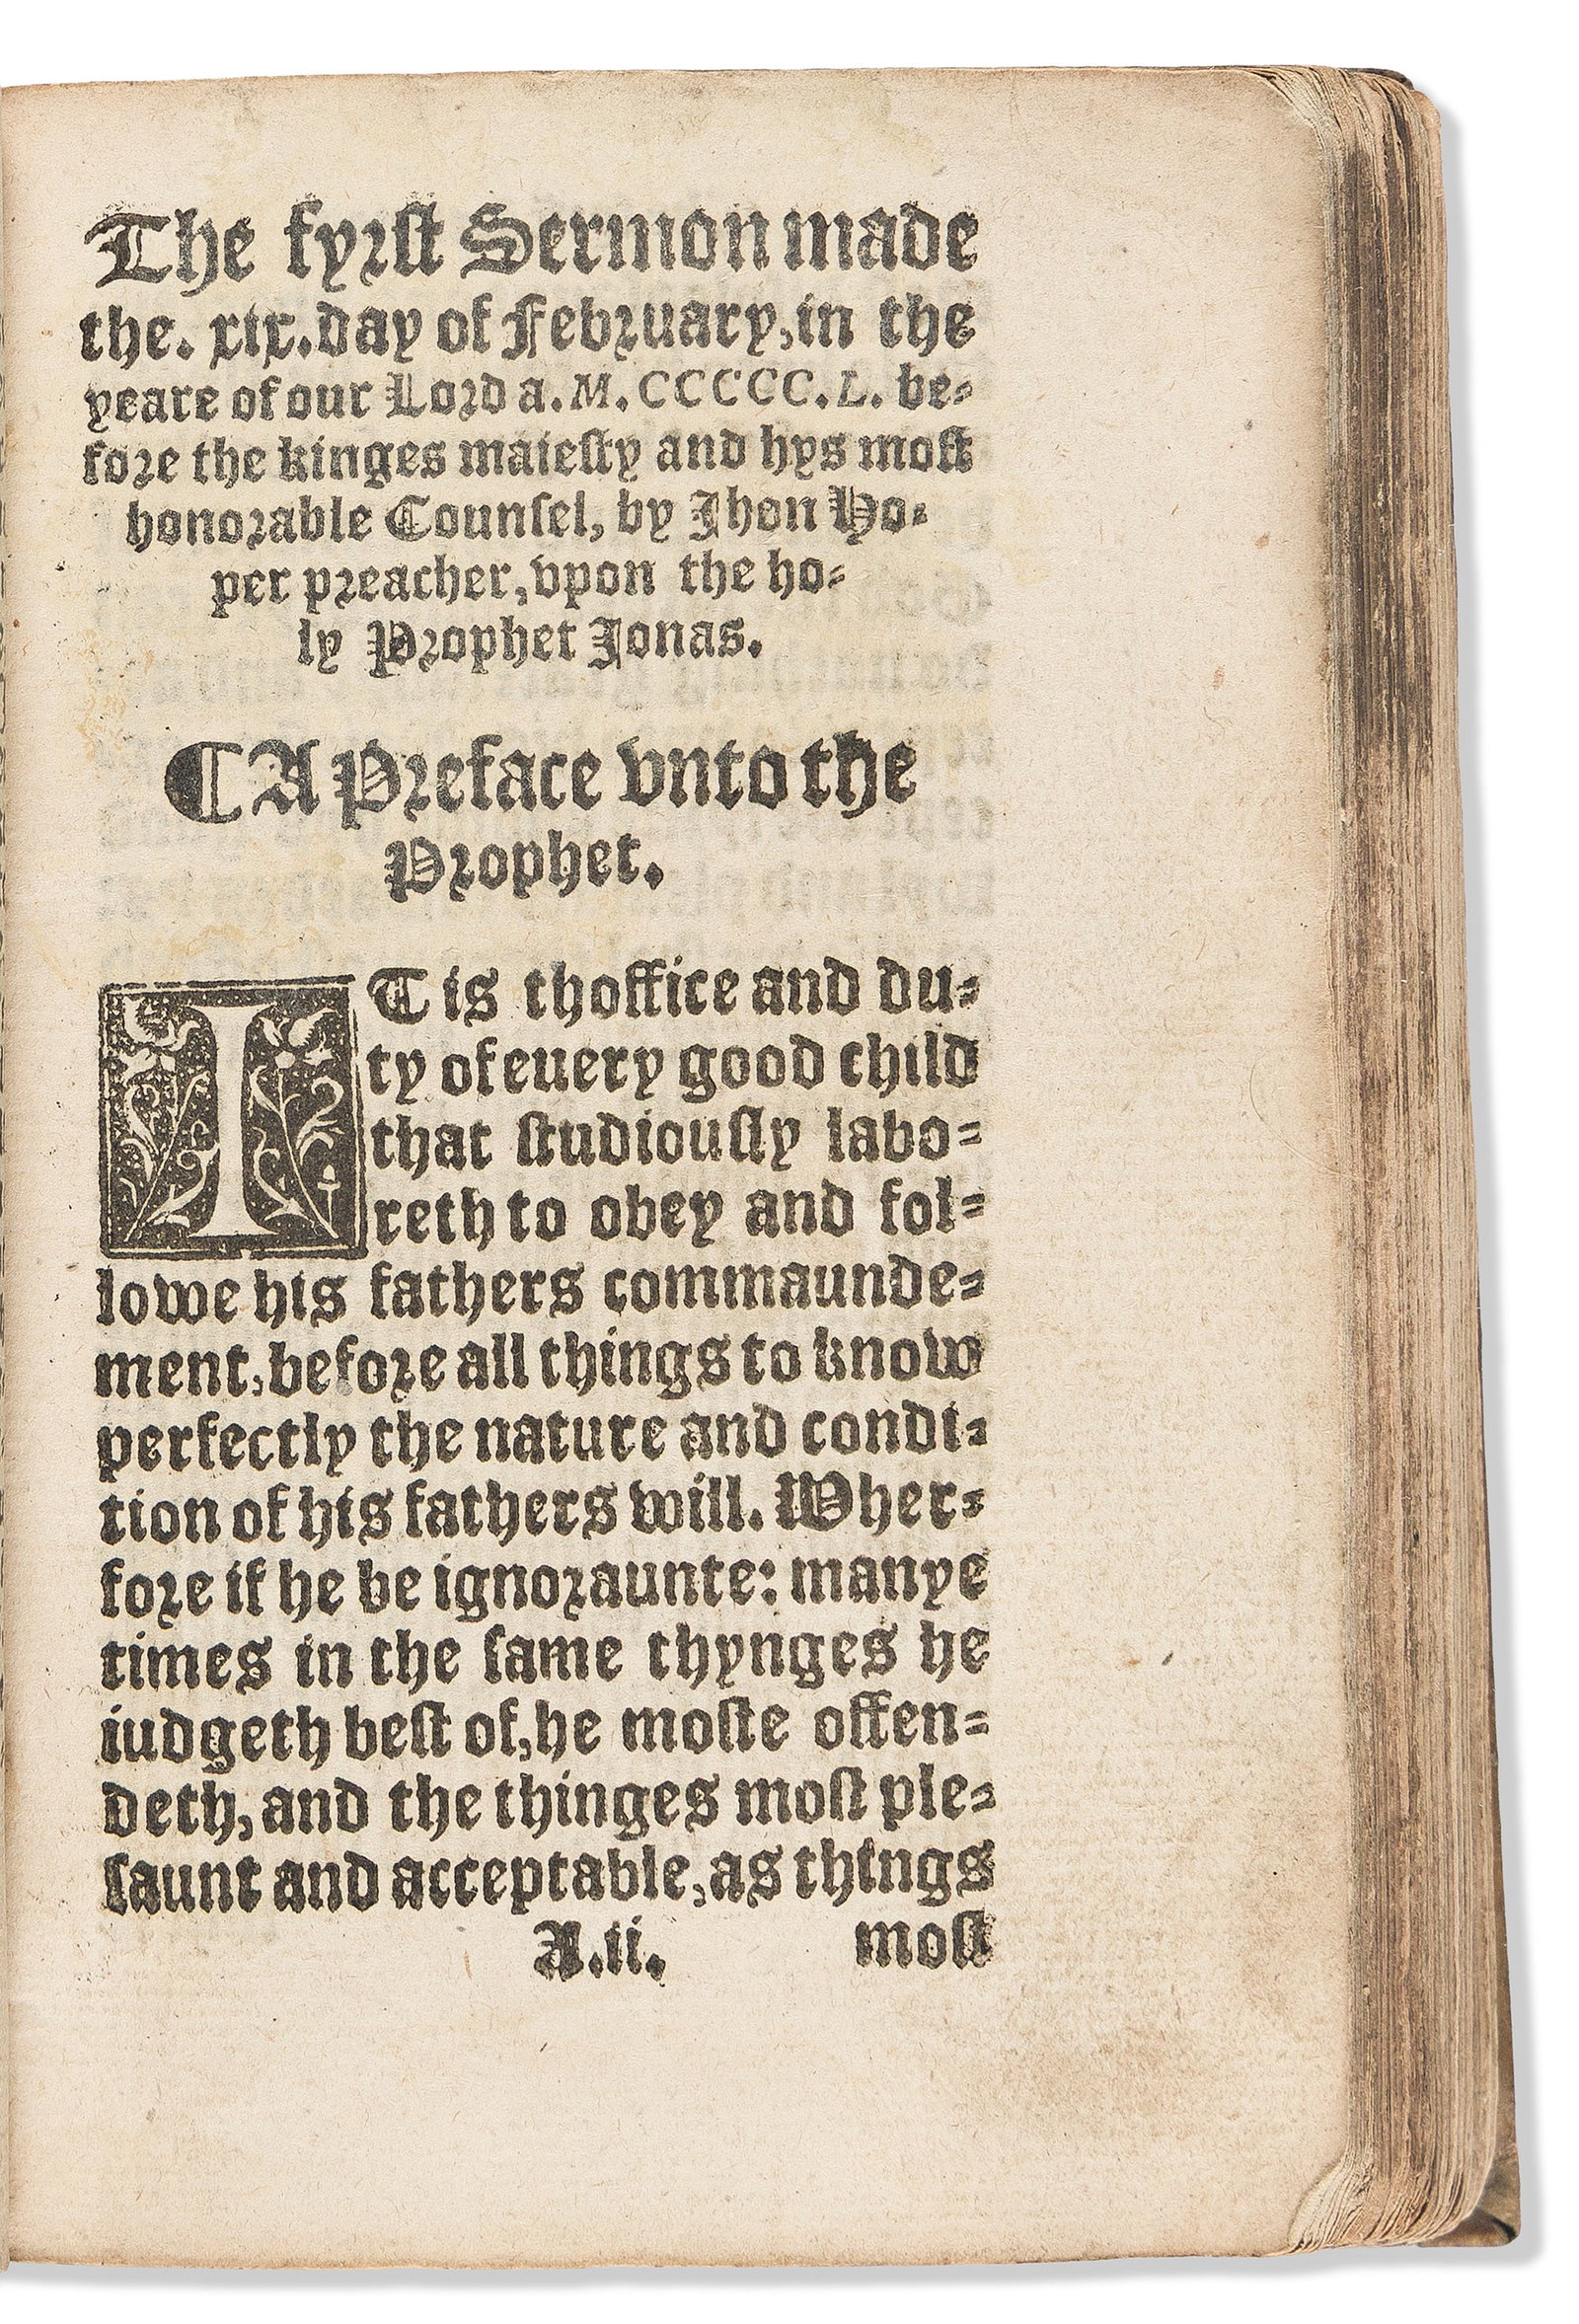 The fyrſt Sermon made
the. xix. day of February, in the
yeare of our Lord a. M. CCCCC. L. be⸗
fore the kinges maieſty and hys moſt
honorable Counſel, by Jhon Ho⸗
per preacher, vpon the ho⸗
ly Prophet Jonas.
¶ A Preface vnto the
Prophet.
IT is thoffice and du⸗
ty of euery good child
that ſtudiouſly labo⸗
reth to obey and fol⸗
lowe his fathers commaunde⸗
ment, before all things to know
perfectly the nature and condi⸗
tion of his fathers will. Wher⸗
fore if he be ignoraunte: manye
times in the ſame thynges he
iudgeth beſt of, he moſte offen⸗
deth, and the thinges moſt ple⸗
ſaunt and acceptable, as things
A.ii. moſt